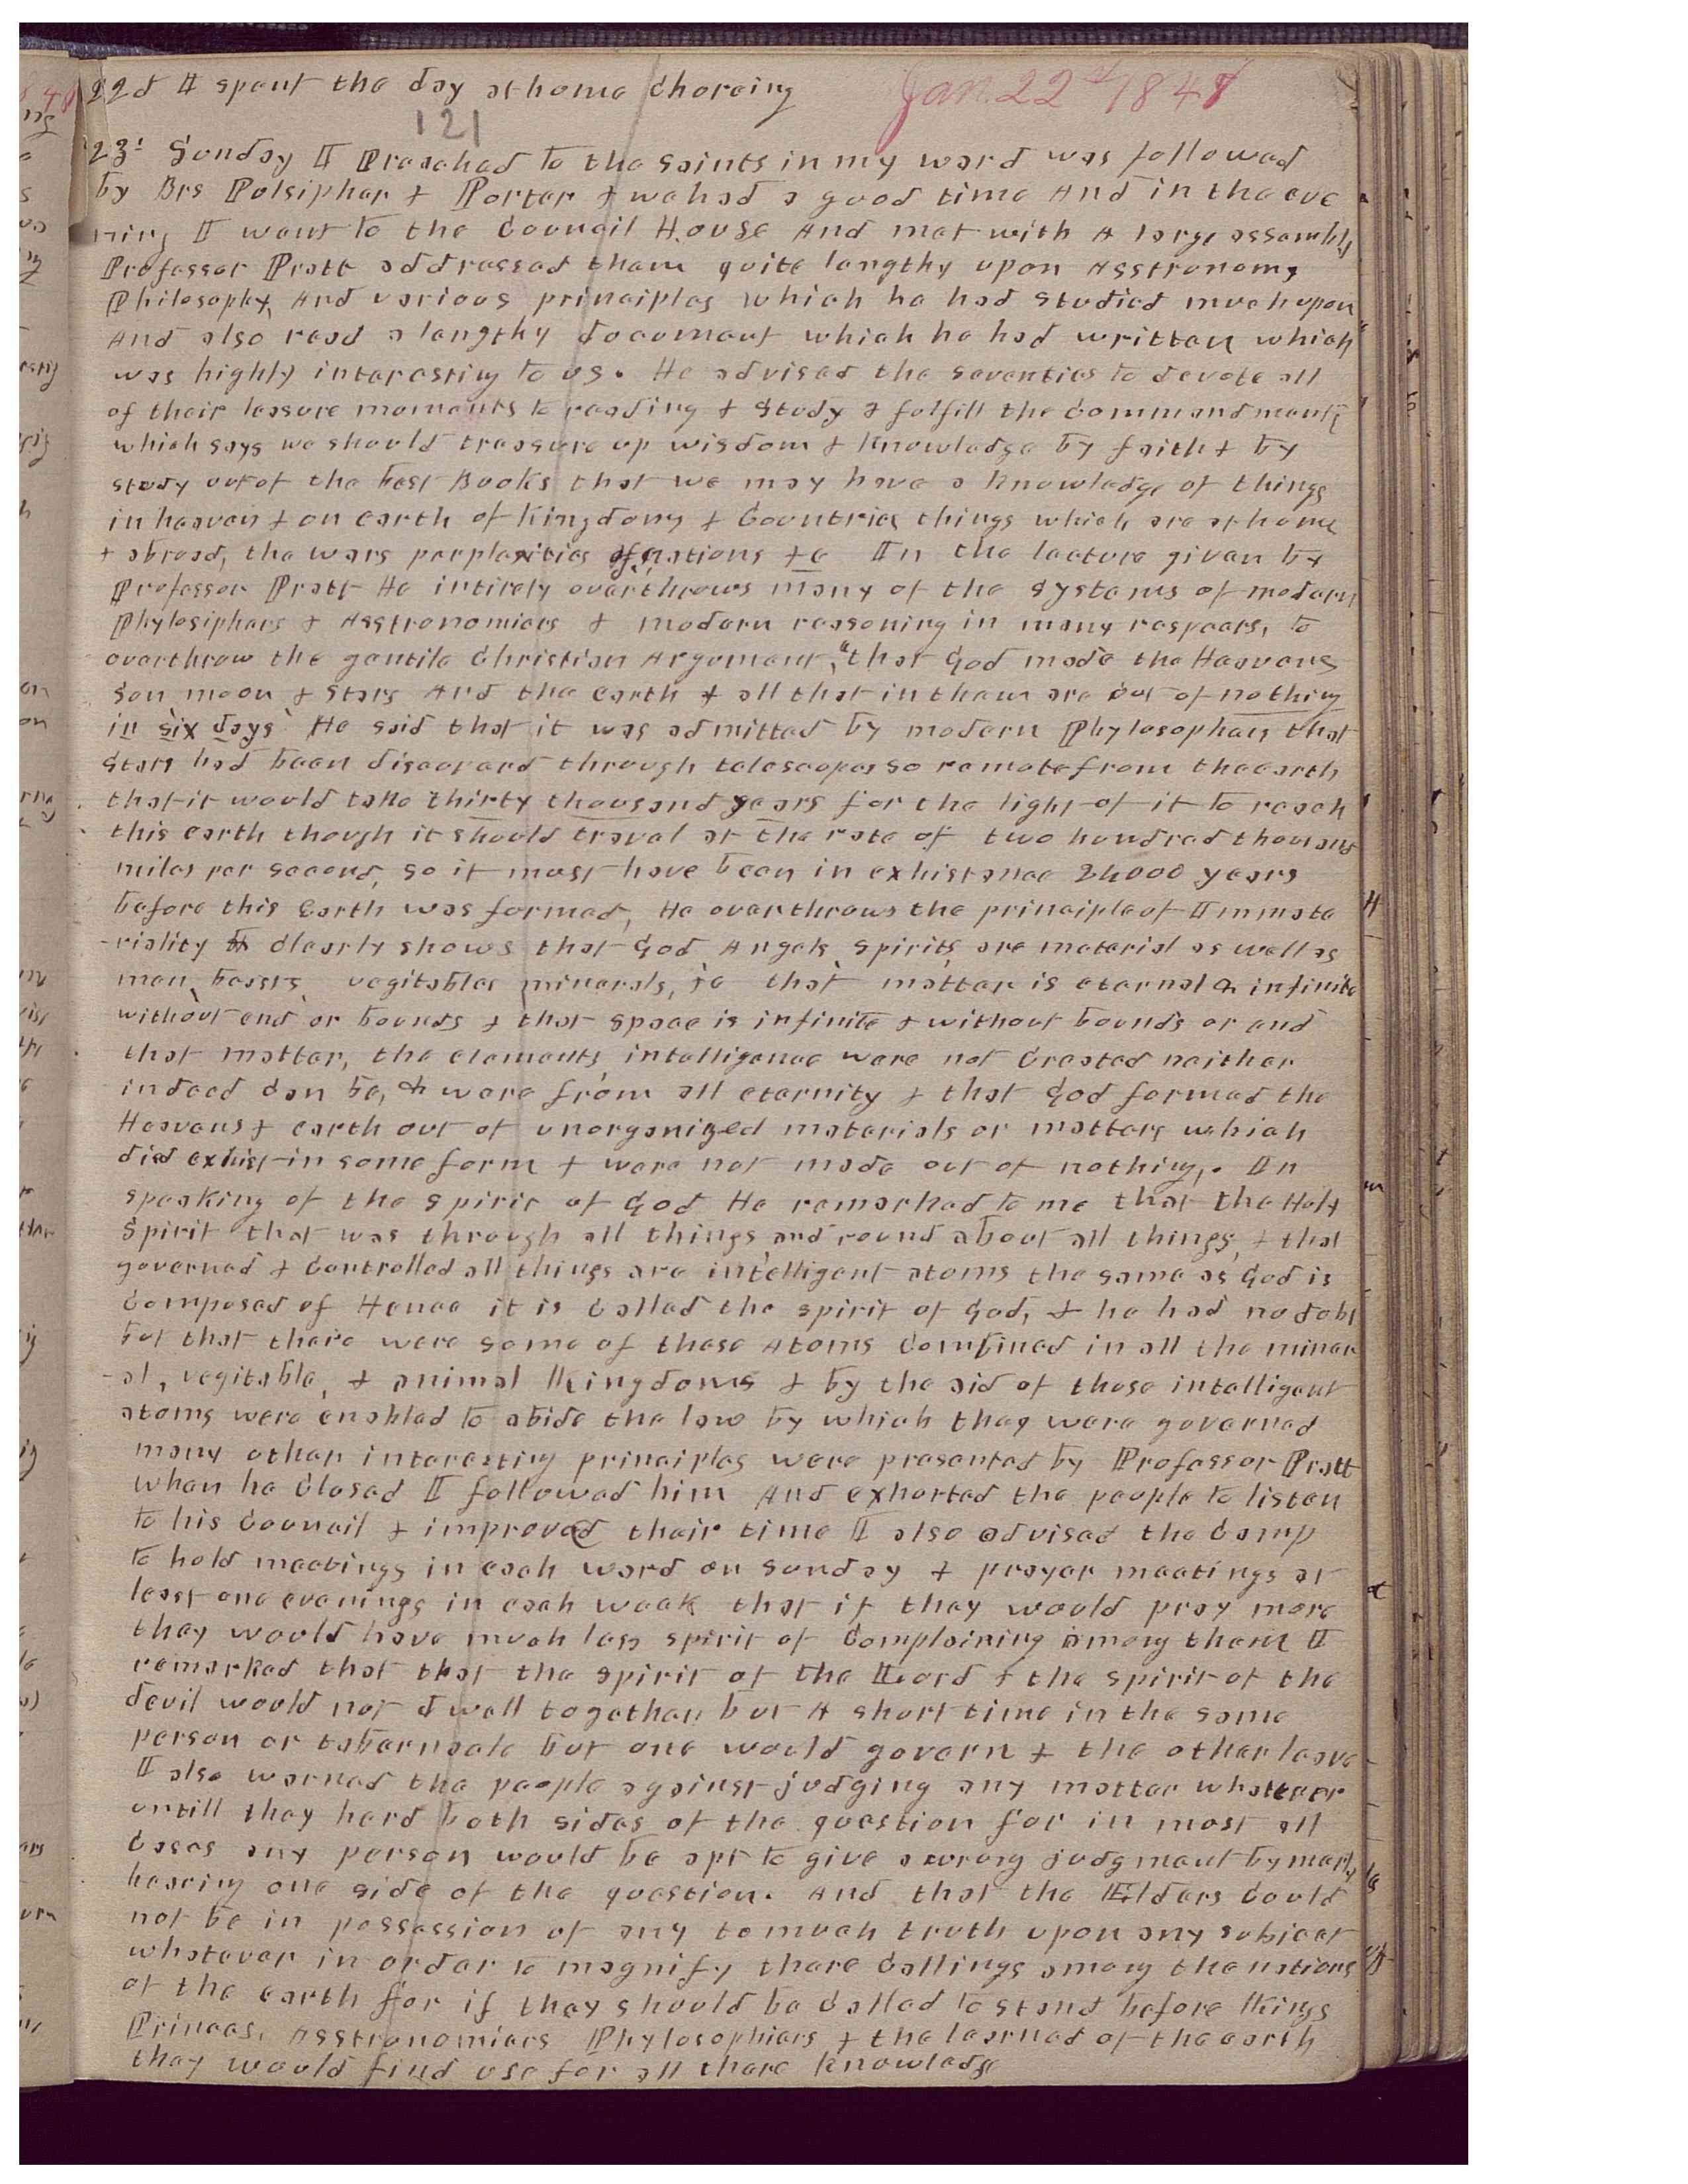 22d I spent the day at home choreing
Jan. 22d 1848
121
23d Sunday I Preached to the saints in my ward was followed
by Brs Pulsipher + Porter + we had a good time And in the eve
ning I went to the Council House And met with A large assembly
Professor Pratt addressed them quite lengthy upon Asstronomy
Philosophy, And various principles which he had studied much upon
And also read a lengthy document which he had written which
was highly interesting to us. He advised the seventies to devote all
of their leasure moments to reading + study + fulfill the Commandment
which says we should treasure up wisdom + knowledge by faith + by
study out of the best Books that we may have a knowledge of things
in heaven + on earth of kingdoms + Countries things which are at home
+ abroad, the wars perplexities of nations +c In the lecture given by
Professor Pratt He intirely overthrows many of the systems of modern
Phylosiphers + Asstronomiers + modern reasoning in many respects, to
overthrow the gentile Christian Argument, "that God made the Heavens
sun moon + stars And the earth + all that in them are out of nothing
in six days" He said that it was admitted by modern Phylosophers that
stars had been discoverd through telescopes so remote from the earth
that it would take thirty thousand years for the light of it to reach
this earth though it should travel at the rate of two hundred thousand
miles per second, so it must have been in exhistance 24000 years
before this Earth was formed, He overthrows the principle of Immate
-riality + Clearly shows that God, Angels, spirits, are material as well as
men, beasts, vegitables, minerals, +c that matter is eternal + infinite
without end or bounds + that space is infinite + without bounds or end
that matter, the elements, intelligence were not Created neither
indeed Can be, + were from all eternity + that God formed the
Heavens + earth out of unorganized materials or matters which
did exhist in some form + were not made out of nothing. In
speaking of the spirit of God He remarked to me that the Holy
Spirit that was through all things and round about all things, + that
governed + Controlled all things are intelligent atoms the same as God is
Composed of Hence it is Called the spirit of God, + he had no dobt
but that there were some of these Atoms Combined in all the miner
-al, vegitable, + animal Kingdoms + by the aid of those intelligent
atoms were enabled to abide the law by which they were governed
many other interesting principles were presented by Professor Pratt
when he Closed I followed him And exhorted the people to listen
to his Council + improved their time I also advised the Camp
to hold meetings in each ward on sunday + prayer meetings at
least one evenings in each week that if they would pray more
they would have much less spirit of Complaining among them I
remarked that that the spirit of the Lord + the spirit of the
devil would not dwell together but A short time in the same
person or tabernacle but one would govern + the other leave
I also warned the people against judging any matter whatever
untill they hard both sides of the question for in most all
Cases any person would be apt to give a wrong judgment by
hearing one side of the question. And that the Elders Could
not be in possession of any to much truth upon any subject
whatever in order to magnify there Callings among the nations
of the earth for if they should be Called to stand before Kings
Princes, Asstronomiers Phylosophiers + the learned of the earth
they would find use for all there knowledge